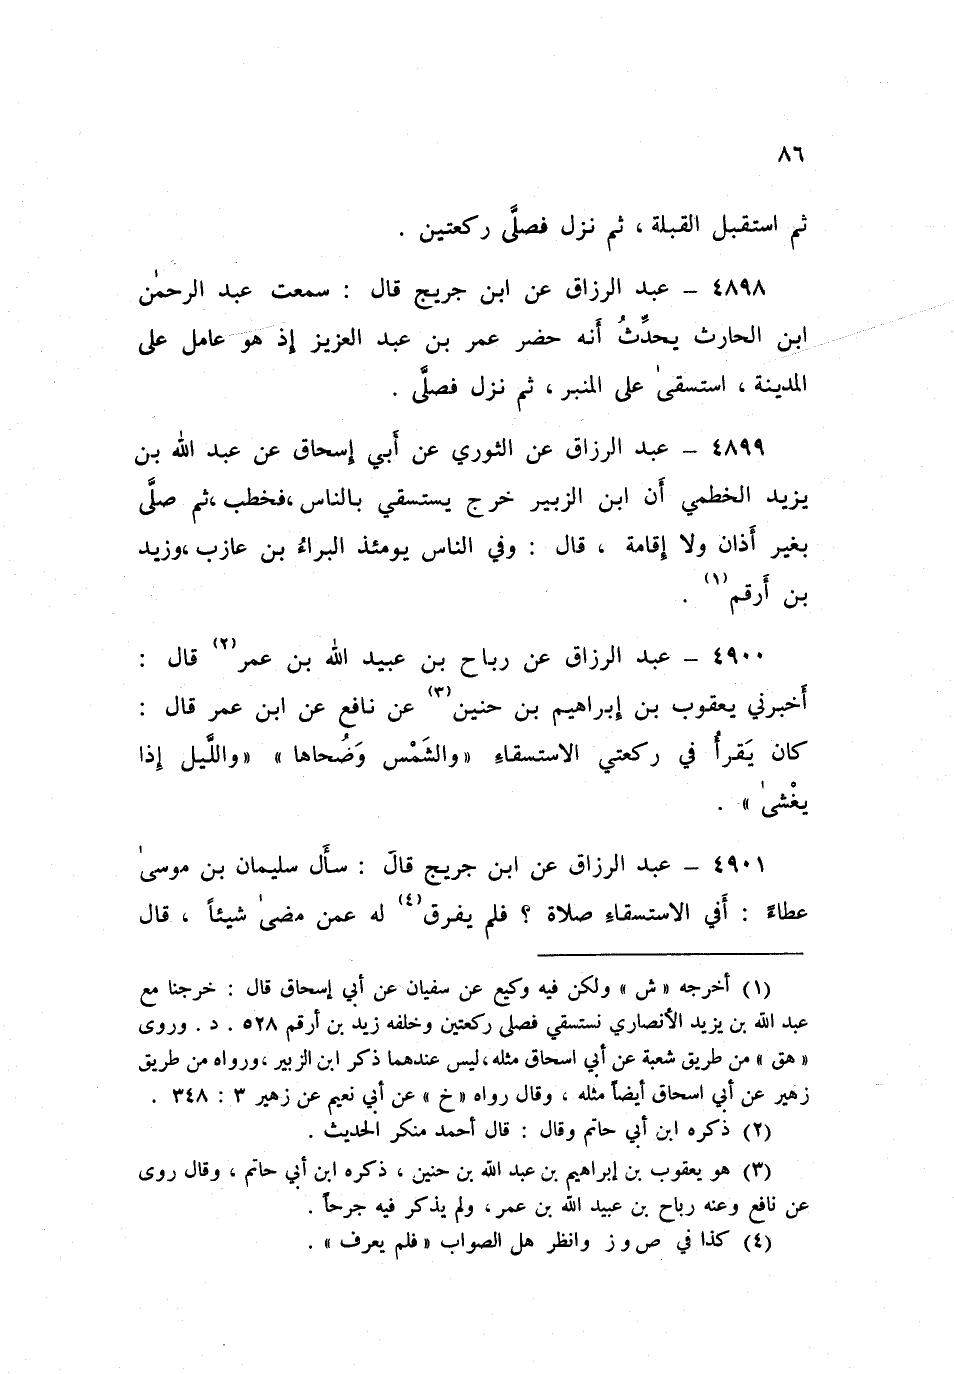 ٨٦
ثم استقبل القبلة ، ثم نزل فصلَّى ركعتين .
٤٨٩٨ – عبد الرزاق عن ابن جريج قال : سمعت عبد الرحمٰن
ابن الحارث يحدِّثُ أَنه حضر عمر بن عبد العزيز إذ هو عامل على
المدينة ، استسقىٰ على المنبر ، ثم نزل فصلَّى .
٤٨٩٩ – عبد الرزاق عن الثوري عن أَبي إِسحاق عن عبد الله بن
يزيد الخطمي أَن ابن الزبير خرج يستسقي بالناس ،فخطب ،ثم صلَّى
بغير أَذان ولا إِقامة ، قال : وفي الناس يومئذ البراءُ بن عازب ،وزيد
بن أَرقم(١) .
٤٩٠٠ – عبد الرزاق عن رباح بن عبيد الله بن عمر(٢) قال :
أَخبرني يعقوب بن إِبراهيم بن حنين(٣) عن نافع عن ابن عمر قال :
كان يَقرأُ في ركعتي الاستسقاءِ «والشَمْس وَضُحاها» «واللَّيل إِذا
يغْشىٰ» .
٤٩٠١ – عبد الرزاق عن ابن جريج قالَ : سأَل سليمان بن موسىٰ
عطاءً : أَفي الاستسقاءِ صلاة ؟ فلم يفرق(٤) له عمن مضىٰ شيئاً ، قال
(١) أخرجه «ش» ولكن فيه وكيع عن سفيان عن أبي إسحاق قال : خرجنا مع
عبد الله بن يزيد الأنصاري نستسقي فصلى ركعتين وخلفه زيد بن أرقم ٥٢٨ . د . وروى
«هق» من طريق شعبة عن أبي اسحاق مثله،ليس عندهما ذكر ابن الزبير ،ورواه من طريق
زهير عن أبي اسحاق أيضاً مثله ، وقال رواه «خ» عن أبي نعيم عن زهير ٣ : ٣٤٨ .
(٢) ذكره ابن أبي حاتم وقال : قال أحمد منكر الحديث .
(٣) هو يعقوب بن إبراهيم بن عبد الله بن حنين ، ذكره ابن أبي حاتم ، وقال روى
عن نافع وعنه رباح بن عبيد الله بن عمر، ولم يذكر فيه جرحاً .
(٤) كذا في ص و ز وانظر هل الصواب «فلم يعرف» .